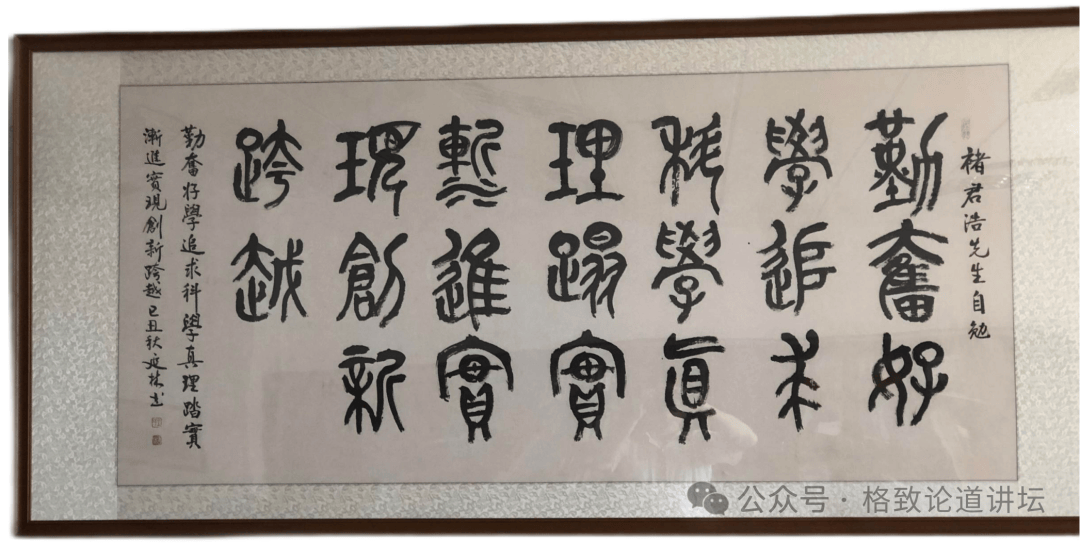 褚君浩先生自勉
勤奮好
學追求
科學真
理踏實
漸進實
現創新
跨越
勤奮好學追求科學真理踏實
漸進實現創新跨越己丑秋延林书
公众号·格致论道讲坛